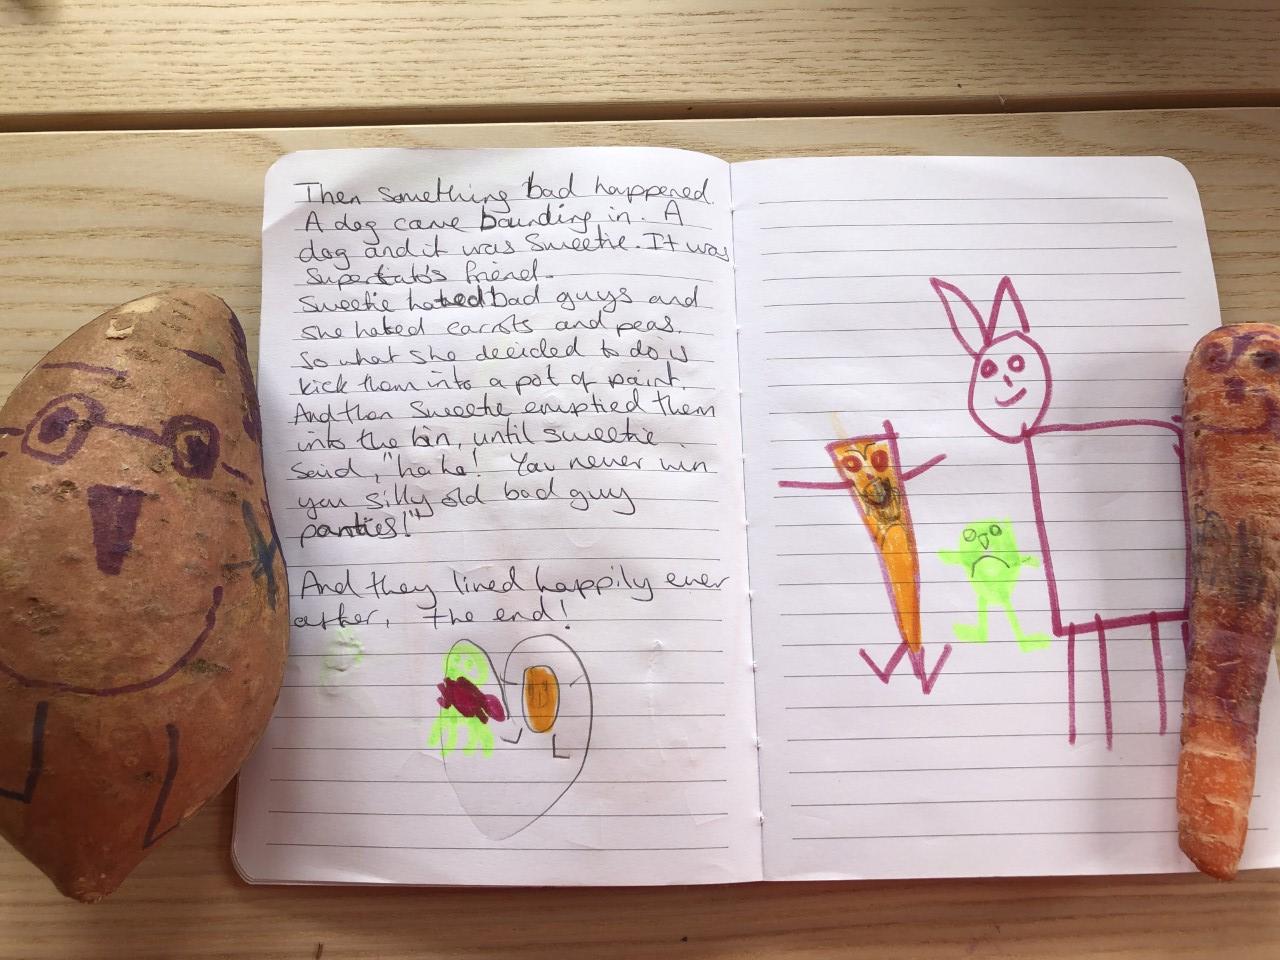 Then something bad happened.
A dog came bounding in. A
dog and it was Sweetie. It was
Supertato's friend.
Sweetie hated bad guys and
she hated carrots and peas.
So what she decided to do is
kick them into a pot of paint.
And then Sweetie emptied them
into the bin, until sweetie
said, "ha ha! You never win
you silly old bad guy
panties!"
And they lived happily ever
after, the end!